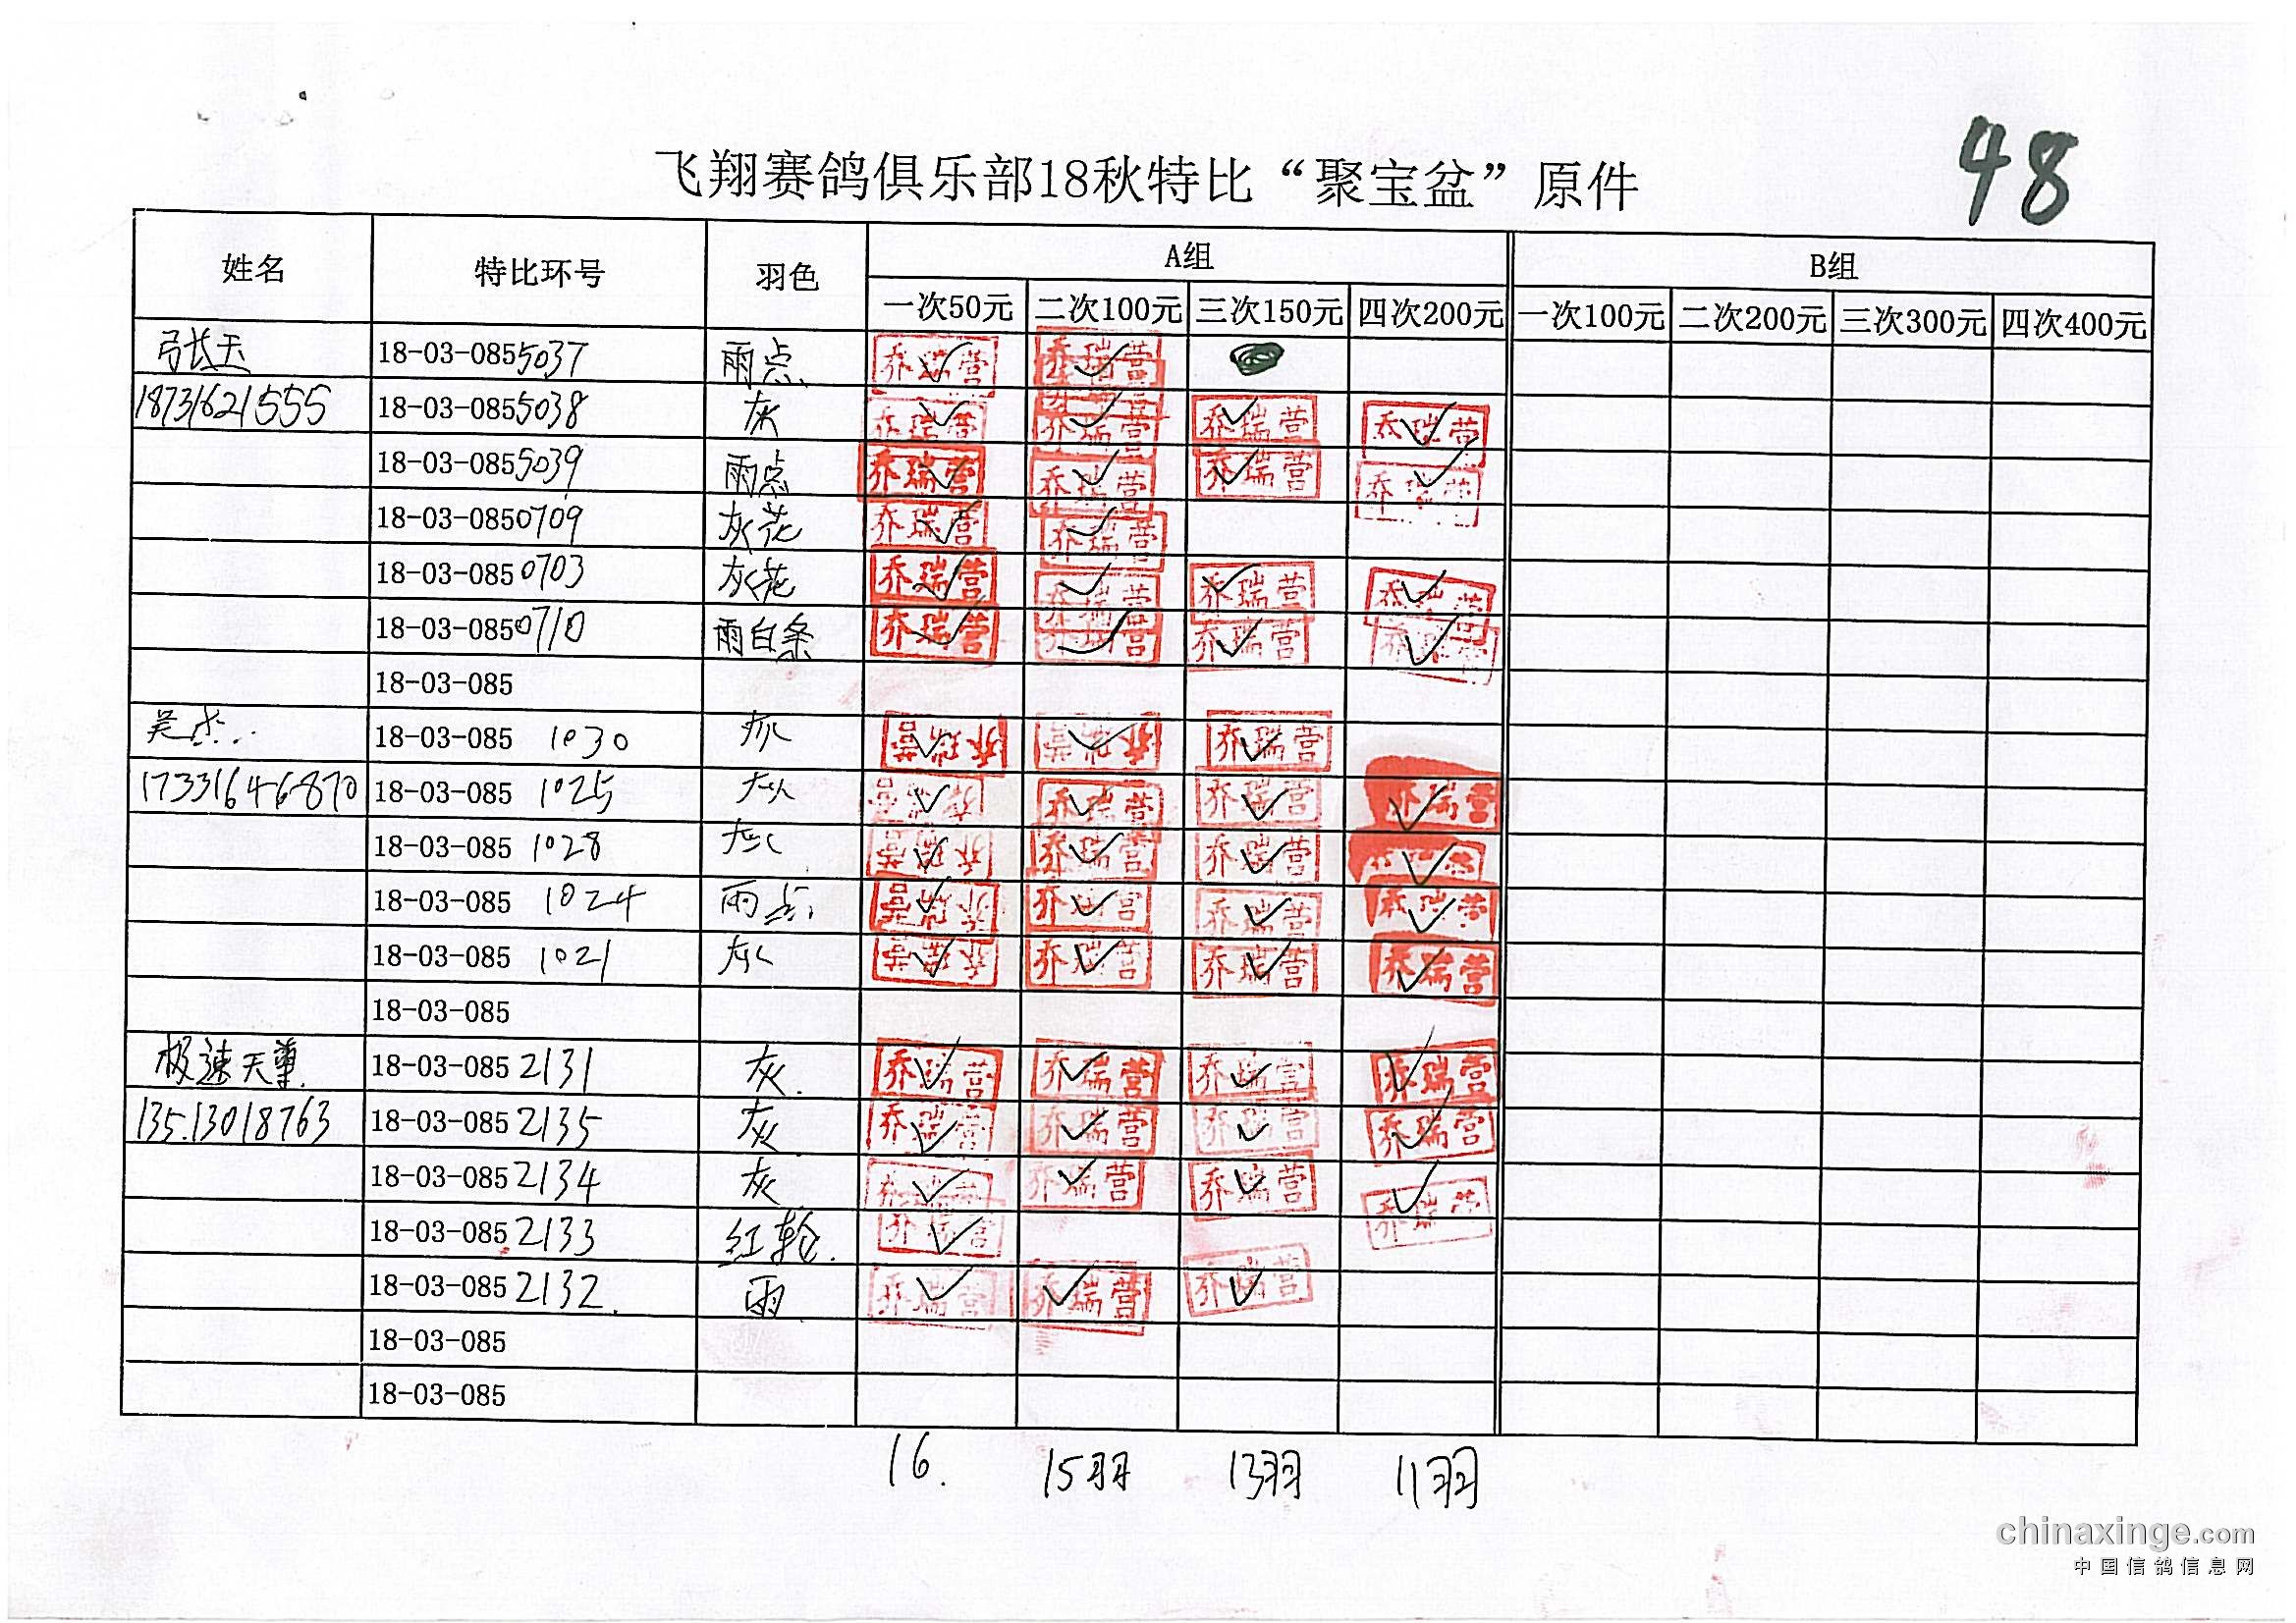 48
飞翔赛鸽俱乐部18秋特比“聚宝盆”原件
姓名 特比环号 羽色 A组 B组
一次50元 二次100元 三次150元 四次200元 一次100元 二次200元 三次300元 四次400元
张玉 18-03-0855037 雨点 乔瑞营 ✓ 乔瑞营 ✓
18731621555 18-03-0855038 灰 乔瑞营 ✓ 乔瑞营 ✓ 乔瑞营 ✓ 乔瑞营 ✓
18-03-0855039 雨点 乔瑞营 ✓ 乔瑞营 ✓ 乔瑞营 ✓ 乔瑞营 ✓
18-03-0850709 灰花 乔瑞营 ✓ 乔瑞营 ✓
18-03-0850703 灰花 乔瑞营 ✓ 乔瑞营 ✓ 乔瑞营 ✓ 乔瑞营 ✓
18-03-0850710 雨白条 乔瑞营 ✓ 乔瑞营 ✓ 乔瑞营 ✓ 乔瑞营 ✓
18-03-085
吴杰 18-03-085 1030 灰 乔瑞营 ✓ 乔瑞营 ✓ 乔瑞营 ✓
17331646870 18-03-085 1025 灰 乔瑞营 ✓ 乔瑞营 ✓ 乔瑞营 ✓ 乔瑞营 ✓
18-03-085 1028 灰 乔瑞营 ✓ 乔瑞营 ✓ 乔瑞营 ✓ 乔瑞营 ✓
18-03-085 1024 雨点 乔瑞营 ✓ 乔瑞营 ✓ 乔瑞营 ✓ 乔瑞营 ✓
18-03-085 1021 灰 乔瑞营 ✓ 乔瑞营 ✓ 乔瑞营 ✓ 乔瑞营 ✓
18-03-085
极速天尊 18-03-085 2131 灰 乔瑞营 ✓ 乔瑞营 ✓ 乔瑞营 ✓ 乔瑞营 ✓
135.13018763 18-03-085 2135 灰 乔瑞营 ✓ 乔瑞营 ✓ 乔瑞营 ✓ 乔瑞营 ✓
18-03-085 2134 灰 乔瑞营 ✓ 乔瑞营 ✓ 乔瑞营 ✓ 乔瑞营 ✓
18-03-085 2133 红轮. 乔瑞营 ✓
18-03-085 2132. 雨 乔瑞营 ✓ 乔瑞营 ✓ 乔瑞营 ✓
18-03-085
18-03-085
16. 15羽 13羽 11羽
chinaxinge.com
中国信鸽信息网